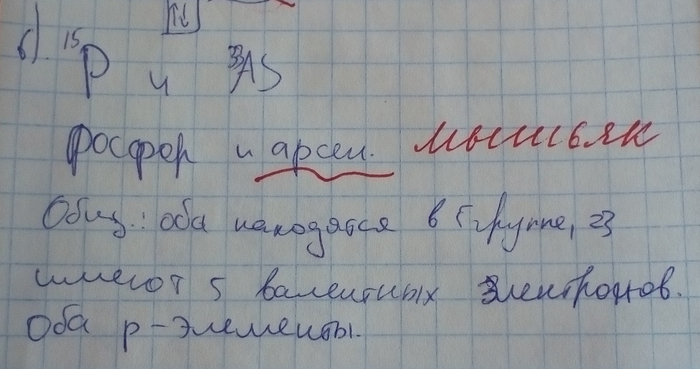 б). 15P и 33As
фосфор и арсен. мышьяк
Общ.: оба находятся в 5 группе, =>
имеют 5 валентных электронов.
Оба p-элементы.